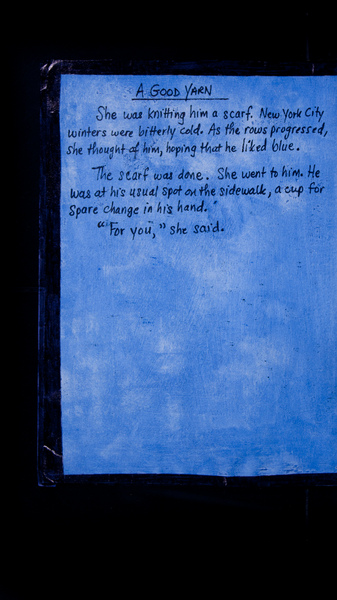 A GOOD YARN
She was knitting him a scarf. New York City
winters were bitterly cold. As the rows progressed,
she thought of him, hoping that he liked blue.
The scarf was done. She went to him. He
was at his usual spot on the sidewalk, a cup for
spare change in his hand.
"For you," she said.